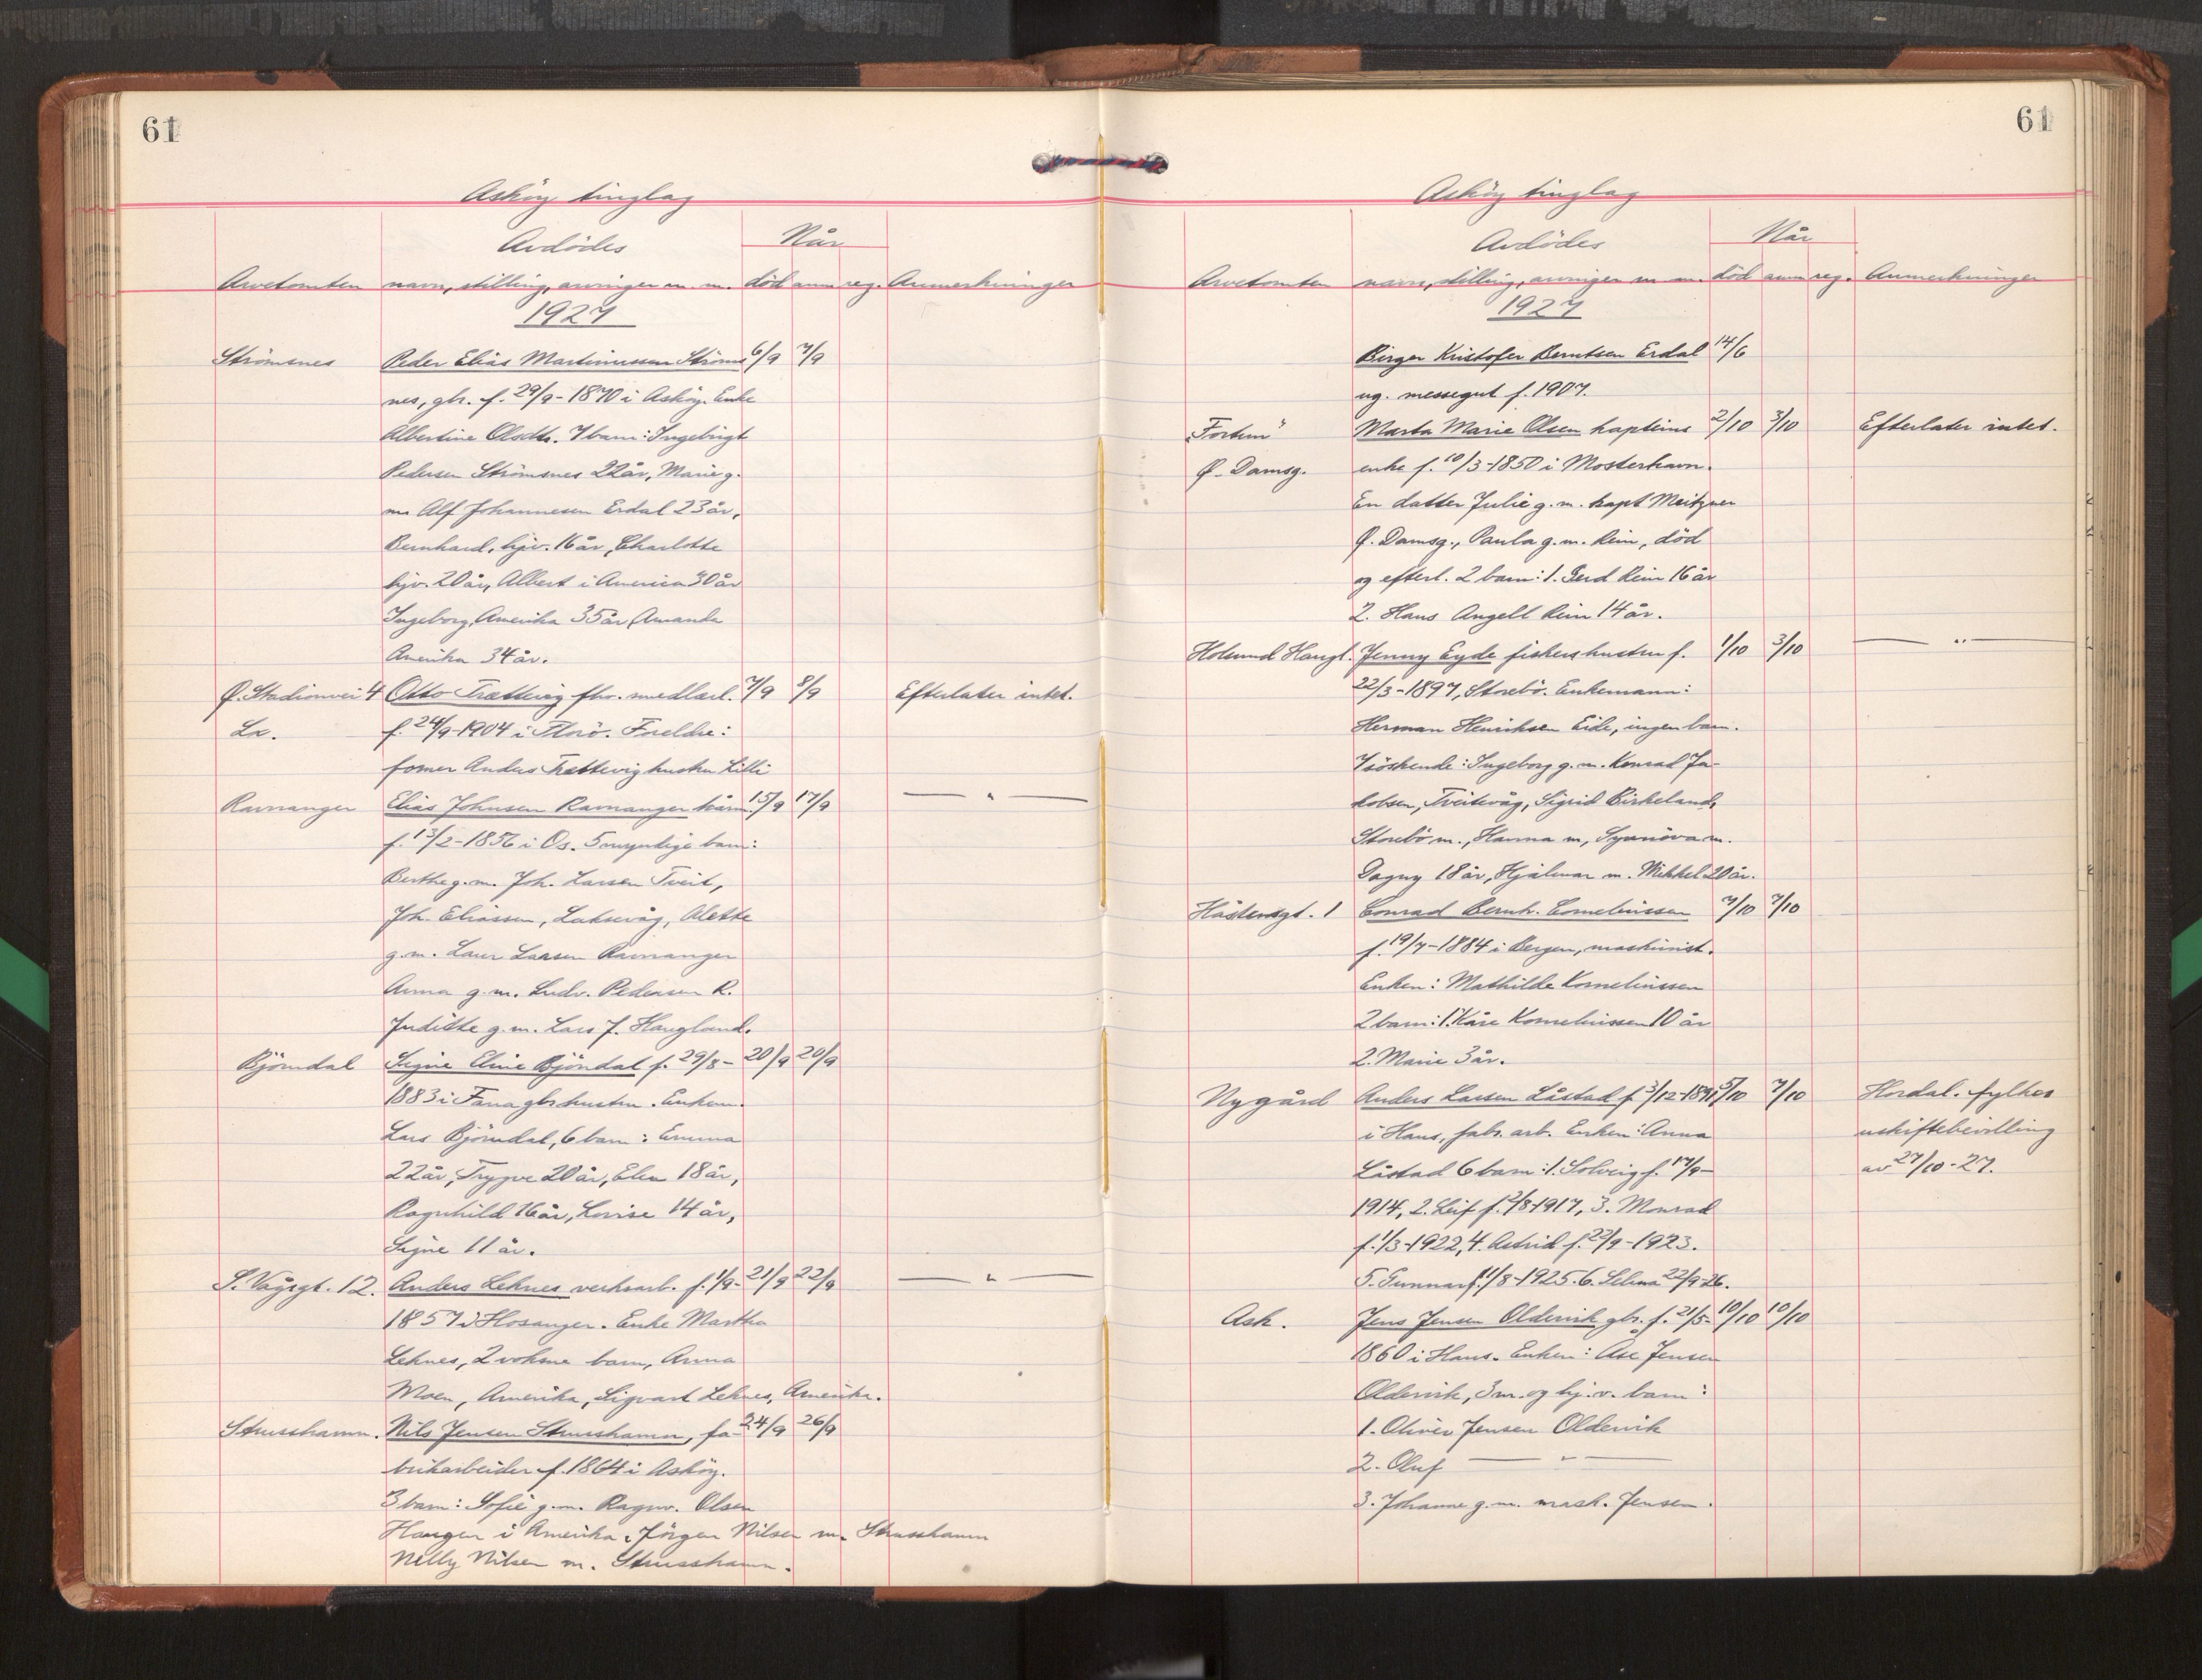 61
Asköy tinglag
Avdödes
Når
Arvetomten navn, stilling, arvinger m. m. död anm reg. Anmerkninger
1927
Strömsnes Peder Elias Martinussen Ströms 6/9 7/9
nes, gbr. f. 29/9-1870 i Asköy. Enke
Albertine Olsdtr. 7 barn: Ingebrigt
Pedersen Strömsnes 22 år, Marie g.
m. Alf Johannesen Erdal 23 år,
Bernhard, hjv. 16 år, Charlotte
hjv. 20 år, Albert i America 30 år
Ingeborg, Amerika 35 år, Amanda
Amerika 34 år.
Ø. Stadionvei 4 Otto Trættevig fhv. smedlærl. 7/9 8/9 Efterlater intet.
La. f. 24/9-1904 i Florö. Foreldre:
former Anders Trættevig hustru Lilli
Ravnanger Elias Johnsen Ravnanger kårm. 15/9 17/9 — " —
f. 13/2-1856 i Os. 5 myndige barn:
Berthe g. m. Joh. Larsen Tveit,
Joh. Eliassen, Laksevåg, Alette
g. m. Laur Larsen Ravnanger
Anna g. m. Ludv. Pedersen R.
Juditte g. m. Lars J. Haugland.
Björndal Signe Eline Björndal f. 29/8- 20/9 20/9
1883 i Fana gbrhustru. Enkem.
Lars Björndal, 6 barn: Emma
22 år, Trygve 20 år, Elen 18 år,
Ragnhild 16 år, Lovise 14 år,
Signe 11 år.
S. Vågsgt. 12. Anders Leknes verksarb. f. 1/9- 21/9 22/9 — " —
1857 i Hosanger. Enke Martha
Leknes, 2 voksne barn, Anna
Moen, Amerika, Sigvart Leknes, Amerika.
Strusshamn. Nils Jensen Strusshamn, fa- 24/9 26/9
brikarbeider f. 1864 i Asköy.
3 barn: Sofie g. m. Ragnv. Olsen
Haugen i Amerika, Jörgen Nilsen m. Strusshamn
Nelly Nilsen m. Strusshamn.
61
Asköy tinglag
Avdödes
Når
Arvetomten navn, stilling, arvinger m m. död anm reg. Anmerkninger
1927
Birger Kristofer Berntsen Erdal 14/6
ug. messegut f. 1907.
"Fortun" Marta Marie Olsen kapteins 2/10 3/10 Efterlater intet.
Ø. Damsg. enke f. 10/3-1850 i Mosterhavn.
En datter Julie g. m. kapt Meitzner
Ø. Damsg., Paula g. m. Rein, död
og efterl. 2 barn: 1. Gerd Rein 16 år
2. Hans Angell Rein 14 år.
Holmund Haugl. Jenny Eyde fiskershustru f. 1/10 3/10 — " —
22/3-1897, Storebö. Enkemann:
Herman Henriksen Eide, ingen barn.
7 söskende: Ingeborg g. m. Konrad Ja-
kobsen, Tveitevåg, Sigrid Birkeland,
Storebö m., Hanna m, Synnöva m.
Dagny 18 år, Hjalmar m. Mikkel 20 år.
Håstensgt. 1 Conrad Bernh. Corneliussen 7/10 7/10
f. 19/7-1884 i Bergen, maskinist.
Enken: Mathilde Korneliussen
2 barn: 1. Kåre Korneliussen 10 år
2. Marie 3 år.
Nygård Anders Larsen Låstad f. 3/12-1891 5/10 7/10 Hordal. fylkes
i Haus, fabr. arb. Enken: Anna uskiftebevilling
Låstad 6 barn: 1. Solveig f. 17/9- av 27/10-27.
1914, 2. Leif f. 2/8-1917, 3. Monrad
f. 1/3-1922, 4. Astrid f. 23/9-1923.
5. Gunnar f. 11/8-1925. 6. Selma 22/9-26.
Ask. Jens Jensen Oldervik gbr. f. 21/5- 10/10 10/10
1860 i Haus. Enken: Åse Jensen
Oldervik, 3 m. og hj. v. barn:
1. Oliver Jensen Oldervik
2. Oluf — " —
3. Johanne g. m. mask. Jensen.